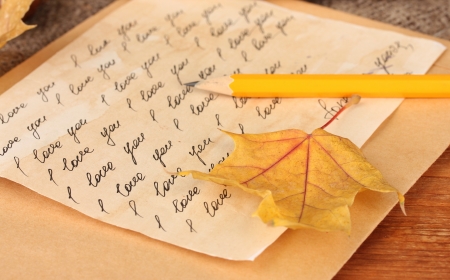 I love you I love you
I love you I love you I love you
I love you I love you I love you I love you
love you I love you I love you I love you
you I love you I love you I love you
I love you I love you I love you
I love you I love you
I love you I love you
I love you
I love